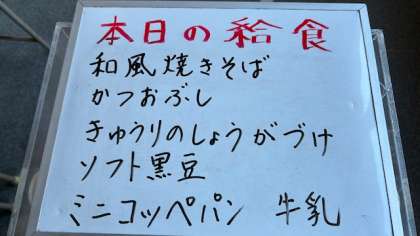 本日の給食
和風焼きそば
かつおぶし
きゅうりのしょうがづけ
ソフト黒豆
ミニコッペパン 牛乳